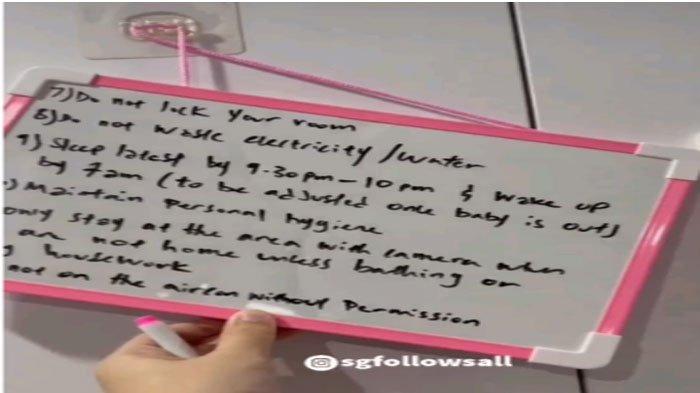 7) Do not lock your room
8) Do not waste electricity/water
9) Sleep latest by 9.30pm-10pm & wake up
by 7am (to be adjusted once baby is out)
) Maintain Personal hygiene
only stay at the area with camera when
are not home unless bathing or
g housework
not on the aircon without Permission
sgfollowsall